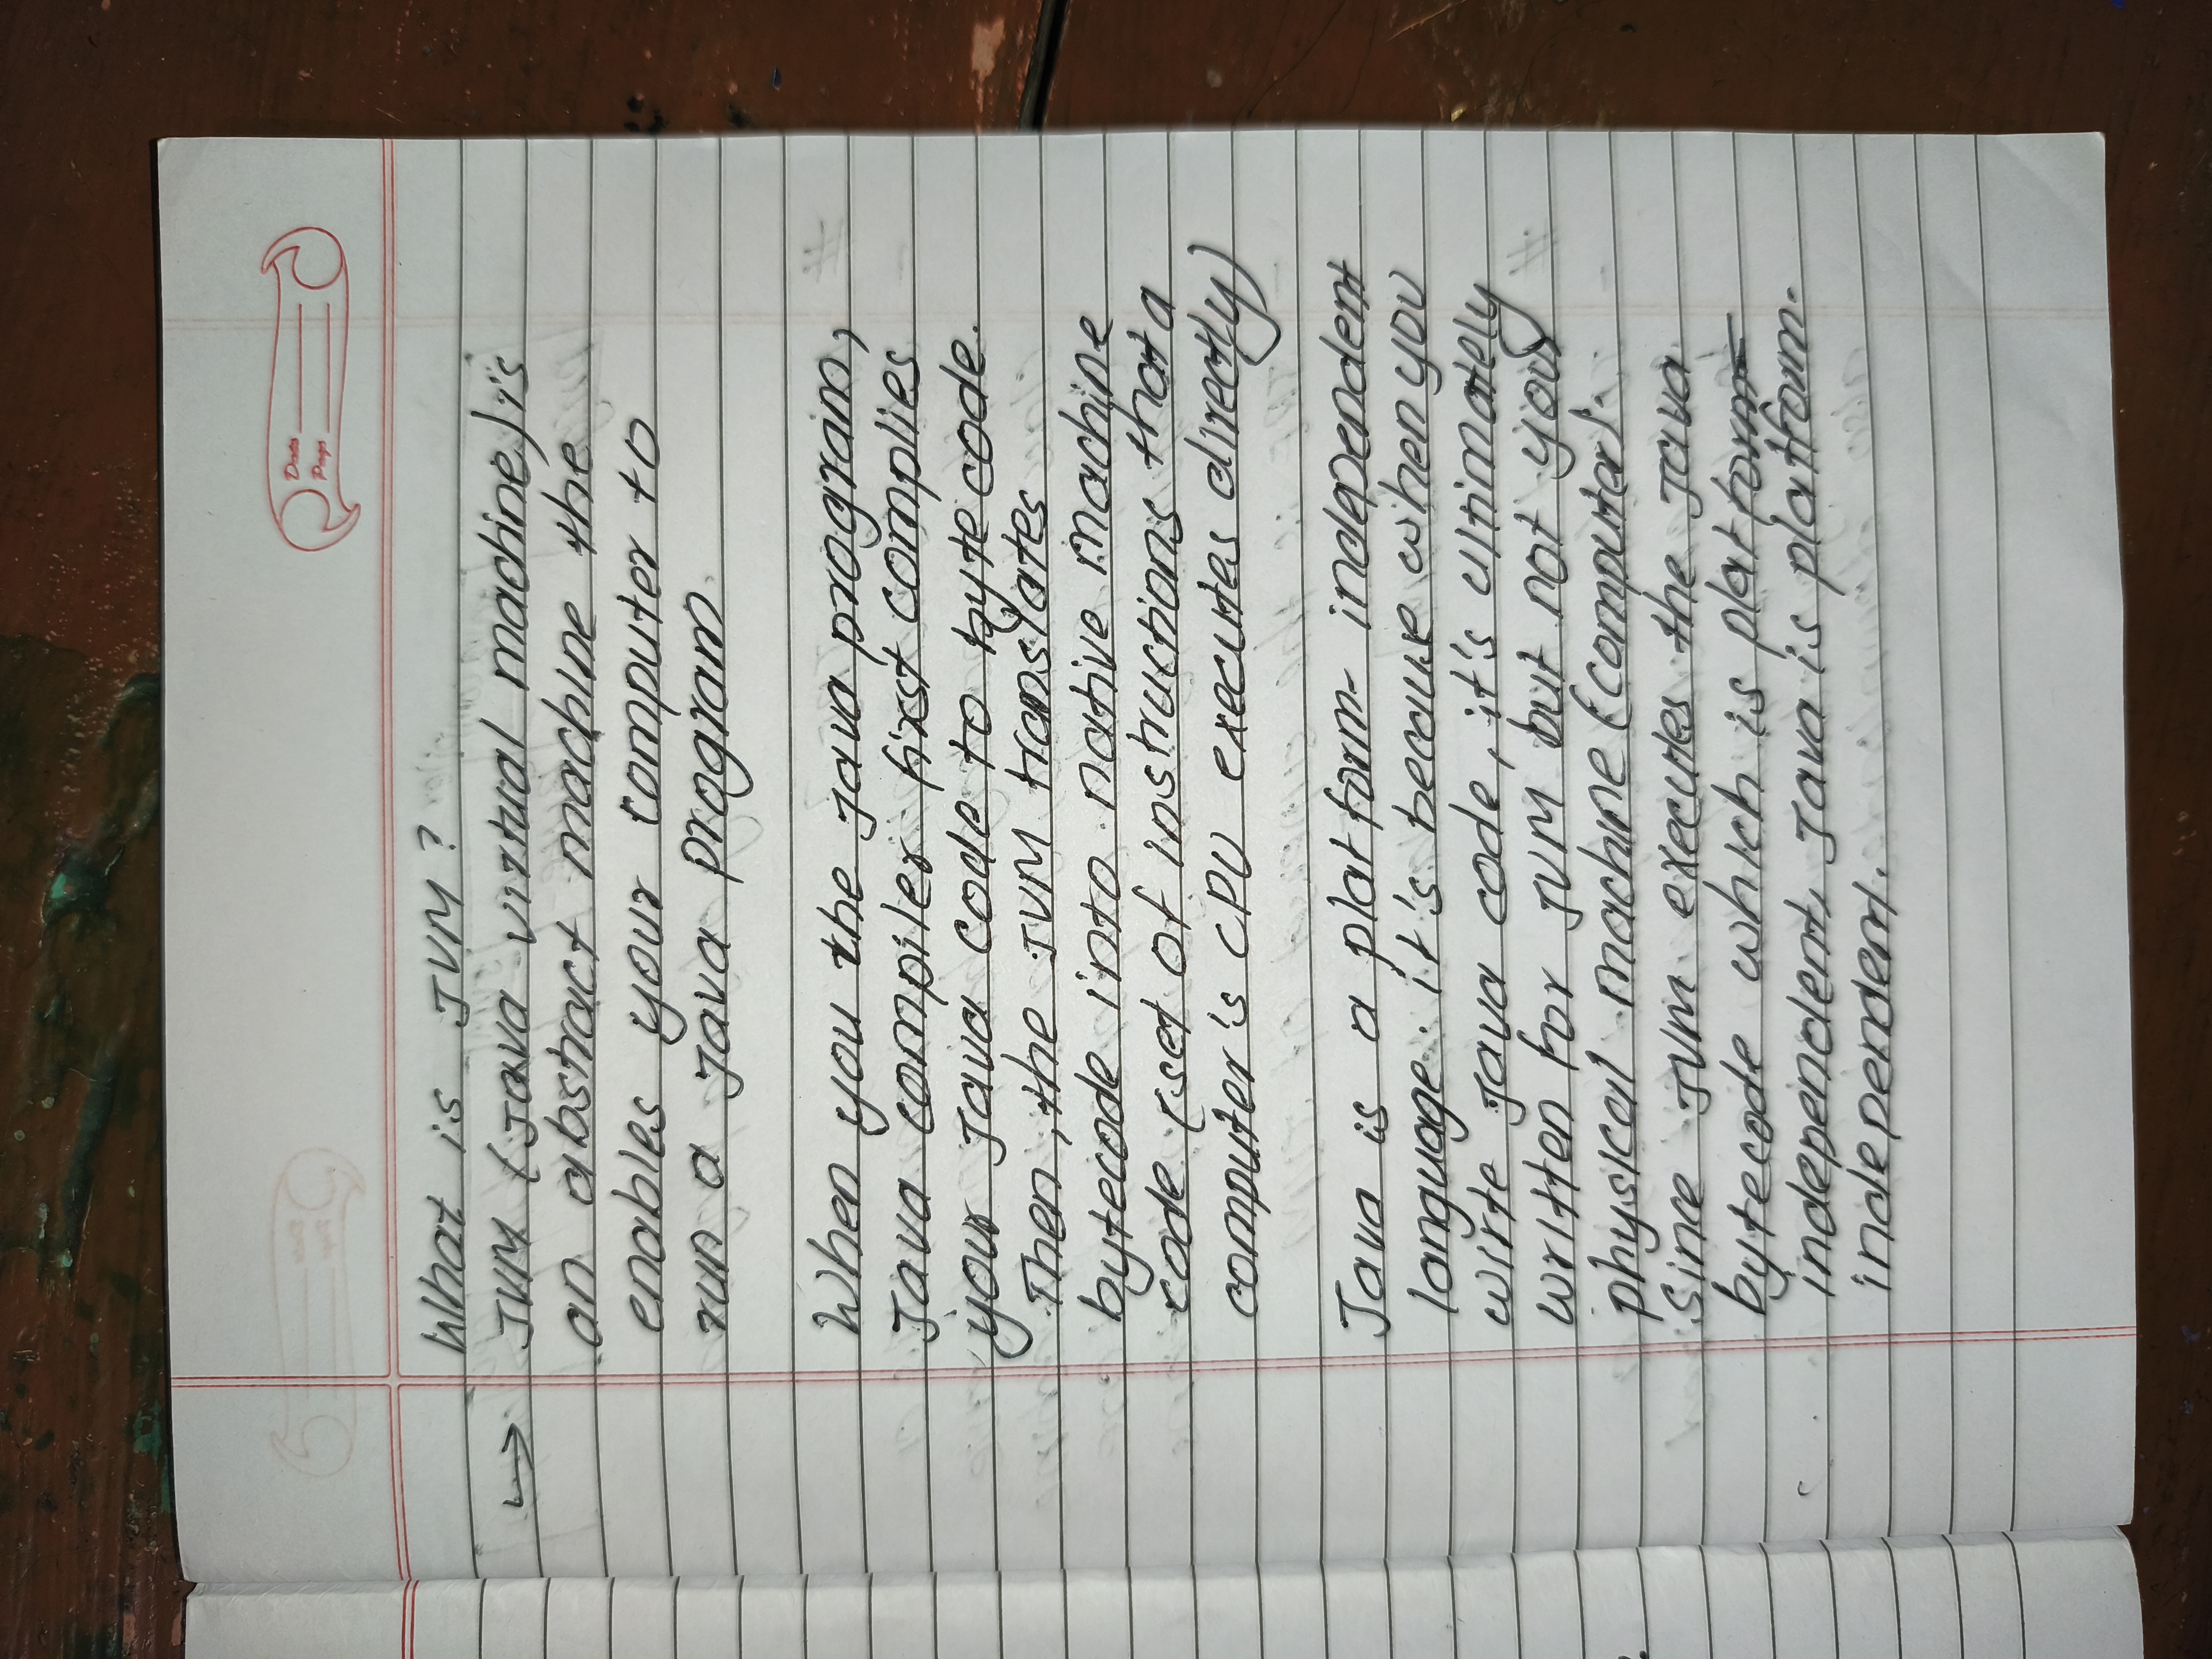 Date
Page
What is JVM ?
→ JVM (Java virtual machine) is
an abstract machine the
enables your computer to
run a Java program.
When you the Java program,
Java compiler first complies
your Java code to bytecode.
Then, the JVM translates
bytecode into native machine
code (set of instructions that a
computer's CPU executes directly)
Java is a platform-independent
language. it's because when you
wirte Java code, it's utimately
written for JVM but not your
physical machine (computer).
Since JVM executes the Java
bytecode which is platform
independent, Java is platform.
independent.